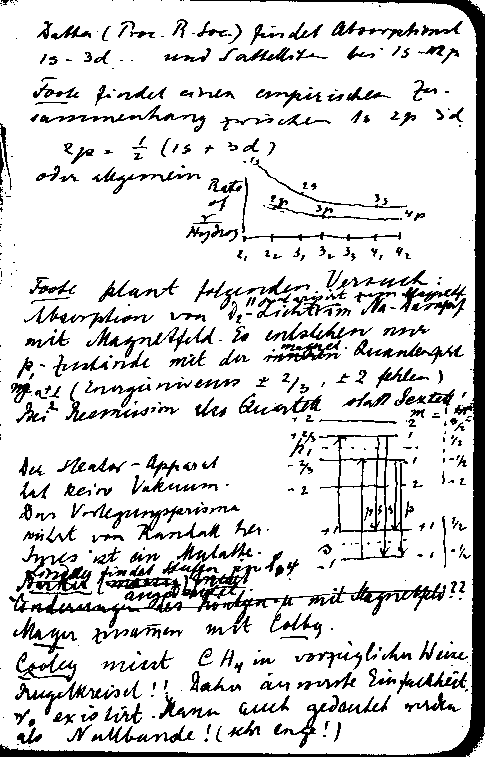 Datta (Proc. R. Soc.) findet Absorptionsl
1s - 3d .. und Satelliten bei 1s - m p
Foote findet einen empirischen Zu-
sammenhang zwischen 1s 2p 3d
2p = 1/2 (1s + 3d)
oder allgemein
Ratio
of
ν
Hydrog
1s 2s 3s
2p 3p 4p
2₁ 2₂ 3₁ 3₂ 3₃ 4₁ 4₂
Foote plant folgenden Versuch:
Absorption von D₂-Licht im Na-Dampf
mit Magnetfeld. Es entstehen nur
p₁-Zustände mit der magnet. Quantenzahl
(Energieniveaus ± 2/3, ± 2 fehlen)
Bei Reemission das Quartett statt Sextett!
m =
+ 2
+ 2/3
p₁
- 2/3
- 2
p s s p
Der Apparat
hat kein Vakuum.
Das Vorlegungsprisma
rührt von Randall her.
Ines ist ein Mulatte.
findet
mit Magnetfeld??
Mayer zusammen mit Colby.
Cooley misst CH₄ in vorzüglicher Weise
Kugelkreisel!! Daher äusserste Einfachheit,
ν₀ existirt. Kann auch gedeutet werden
als Nullbande! (sehr enge!)